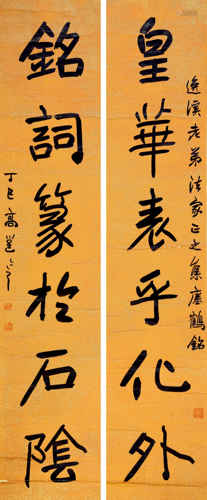 皇華表乎化外
逸溪老弟法家正之集瘞鶴銘
銘詞篆於石陰
丁巳高邕